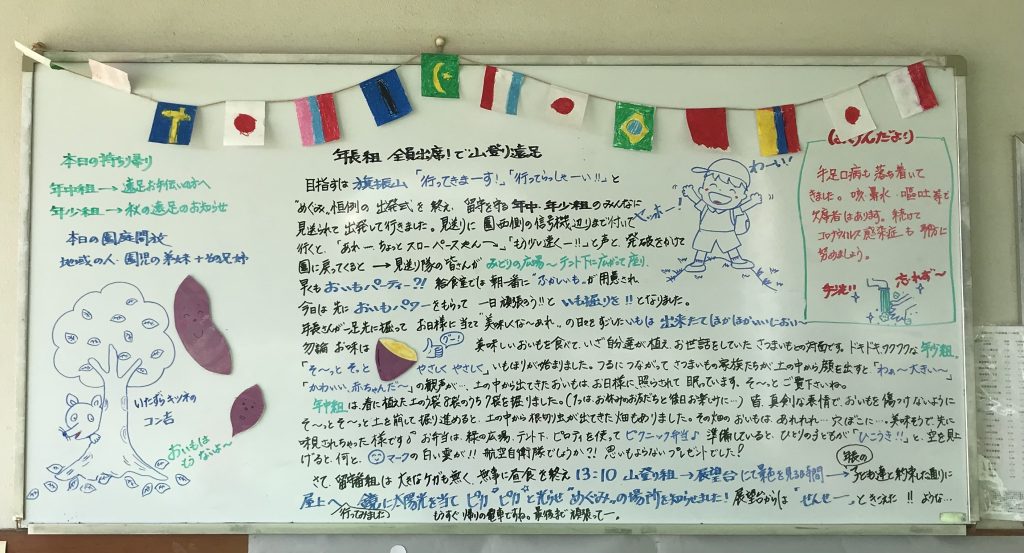 本日の持ち帰り
年中組→遠足お手伝いの方へ
年少組→秋の遠足のお知らせ
本日の園庭開放
地域の人・園児の弟妹
いたずらキツネの
コン吉
おいもは
もうないよ～
年長組 全員出席!で山登り遠足
目指すは旗振山「行ってきまーす!」「行ってらっしゃーい!!」と
"めぐみ"恒例の出発式を終え、留守を守る年中、年少組のみんなに
見送られて出発して行きました。見送りに園西側の信号機辺りまで付いて
行くと、「あれ…ちょっとスローペースやん～。」「もう少し速くー!!」と声と発破をかけて
園に戻ってくると→見送り隊の皆さんがみどりの広場～テント下に広がって座り、
早もおいもパーティー?! 給食室では朝一番に"ふかいも"が用意され
今日は先においもパワーをもらって一日頑張ろう!!といも掘りを!!となりました。
年長さんが一足先に掘って お日様に当てて"美味しくな～あれ"の日々をすごしたいもは出来たてほかほかいいにおい～
勿論お味は グー! 美味しいおいもを食べて、いざ自分達が植え、お世話をしていたさつまいもとの対面です。ドキドキ、ワクワクな年少組。
「そ～っと そ～っと やさしく やさしく」いもほりが始まりました。つるにつながってさつまいも家族たちが、土の中から顔を出すと「わぁ～大きい～」
「かわいい、赤ちゃんだ～」の歓声が…、土の中から出てきたおいもは、お日様に、照らされて眠っています。そ～っとご覧下さいね。
年中組は、春に植えた土のう袋8袋のうち7袋を掘りました。(1つはお休みのお友だちと後日お楽しみに…) 皆、真剣な表情で、おいもを傷つけないように
そ～っとそ～っと土を崩して掘り進めると、土の中から根切り虫が出てきた畑もありました。その畑のおいもは、あれれれ…穴ぼこに…、美味そうで、先に
味見されちゃった様です。お弁当は、緑の広場、テント下、ピロティを使ってピクニック弁当♪ 準備していると、ひとりの子どもが「ひこうき!!」と、空を見上
げると、何と、マークの白い雲が!! 航空自衛隊でしょうか?! 思いもよらないプレゼントでした?
さて、留守番組は大きなケガも無く、無事に昼食を終え 13:10 山登り組→展望台にて景色を見る時間→年長の子ども達と約束した通りに
屋上へ 鏡に太陽光を当てピカ"ピカ"と光らせ"めぐみ"の場所を知らせました! 展望台からは せんせー。ときこえた!! ような…
(行ってみました) もうすぐ帰りの電車ですね。最後まで頑張って～。
わーい!
ヤッホー!
ほけんだより
手足口病も落ち着いて
きました。咳・鼻水・嘔吐等で
欠席者はあります。続けて
感染症も予防に
努めましょう。
手洗い
忘れず～